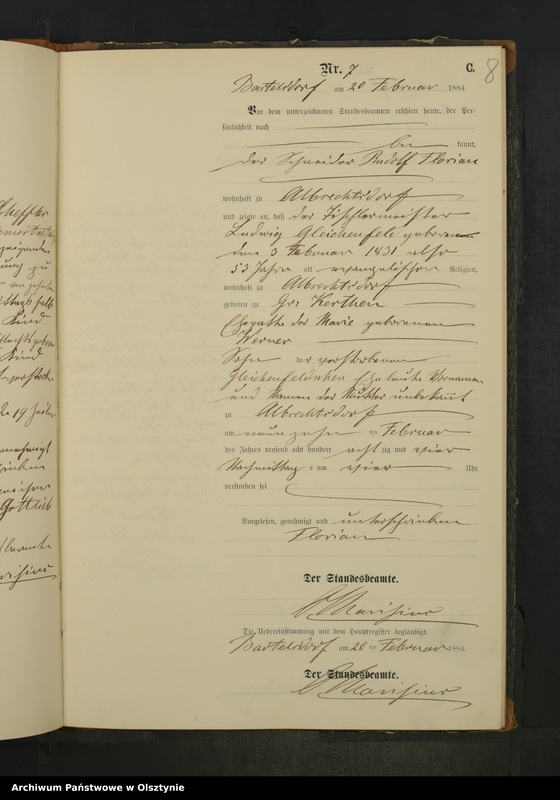 Nr. 7 C. 8
Bartelsdorf am 20 Februar 1884.
Vor dem unterzeichneten Standesbeamten erschien heute, der Per-
sönlichkeit nach
be kannt,
der Schneider Rudolf Florian
wohnhaft zu Albrechtsdorf
und zeigte an, daß der Tischlermeister
Ludwig Gleichenfeld geboren
den 3 Februar 1831 also
53 Jahre alt evangelischer Religion,
wohnhaft zu Albrechtsdorf
geboren zu Gr: Kerthen
Ehegatte der Marie geborenen
Werner
Sohn der verstorbenen
Gleichenfeldschen Eheleute Vornamen
und Namen der Mutter unbekannt
zu Albrechtsdorf
am neunzehn ten Februar
des Jahres tausend acht hundert acht zig und vier
Nachmittag s um vier Uhr
verstorben sei
Vorgelesen, genehmigt und unterschrieben
Florian
Der Standesbeamte.
Die Uebereinstimmung mit dem Hauptregister beglaubigt.
Bartelsdorf am 20 ten Februar 1884.
Der Standesbeamte.
Kind
Kind
19
Gottlieb
Archiwum Państwowe w Olsztynie